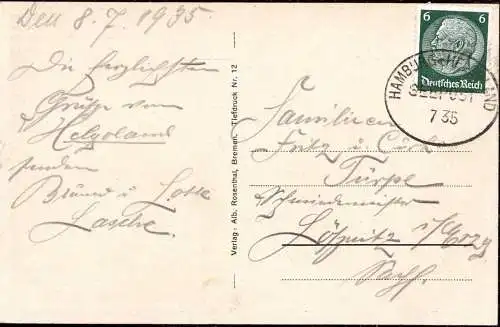 Den 8.7.1935.
Die herzlichsten
Grüße von
Helgoland
senden
Bruno u. Lotte
Lasche.
Verlag: Alb. Rosenthal, Bremen. Tiefdruck Nr. 12
6 6
Deutsches Reich
HAMBU AND
SEEPOST
7 35
Familien
Fritz u.
Türpe
Schmiedemeister
Lößnitz i/Erzg
Sachs.